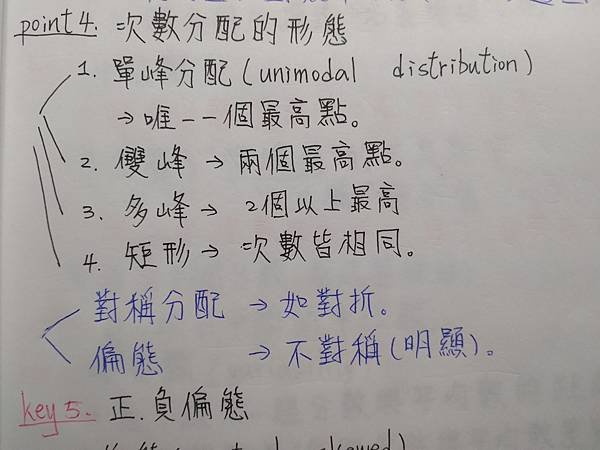 point 4. 次數分配的形態
1. 單峰分配(unimodal distribution)
→唯一一個最高點。
2. 雙峰→兩個最高點。
3. 多峰→ 2個以上最高
4. 矩形→ 次數皆相同。
對稱分配 →如對折。
偏態 →不對稱(明顯)。
key 5. 正.負偏態